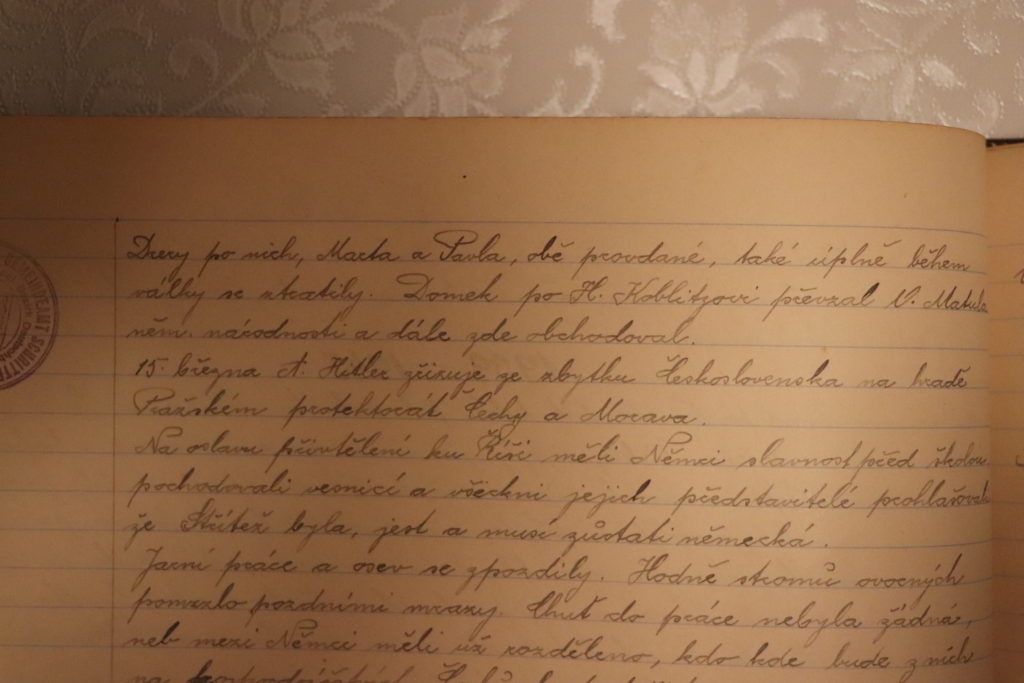 Dcery po nich, Marta a Pavla, obě provdané, také úplně během
války se ztratily. Domek po H. Koblitzovi převzal V. Matula
něm. národnosti a dále zde obchodoval.
15. března A. Hitler zřizuje ze zbytku Československa na hradě
Pražském protektorát Čechy a Morava.
Na oslavu přivtělení ku Říši měli Němci slavnost před školou
pochodovali vesnicí a všeckni jejich představitelé prohlašovali
že Střítež byla, jest a musí zůstati německá.
Jarní práce a osev se zpozdily. Hodně stromů ovocných
pomrzlo pozdními mrazy. Chuť do práce nebyla žádná,
neb mezi Němci měli už rozděleno, kdo kde bude z nich
na
GEMEINDEAMT SCHRITTE